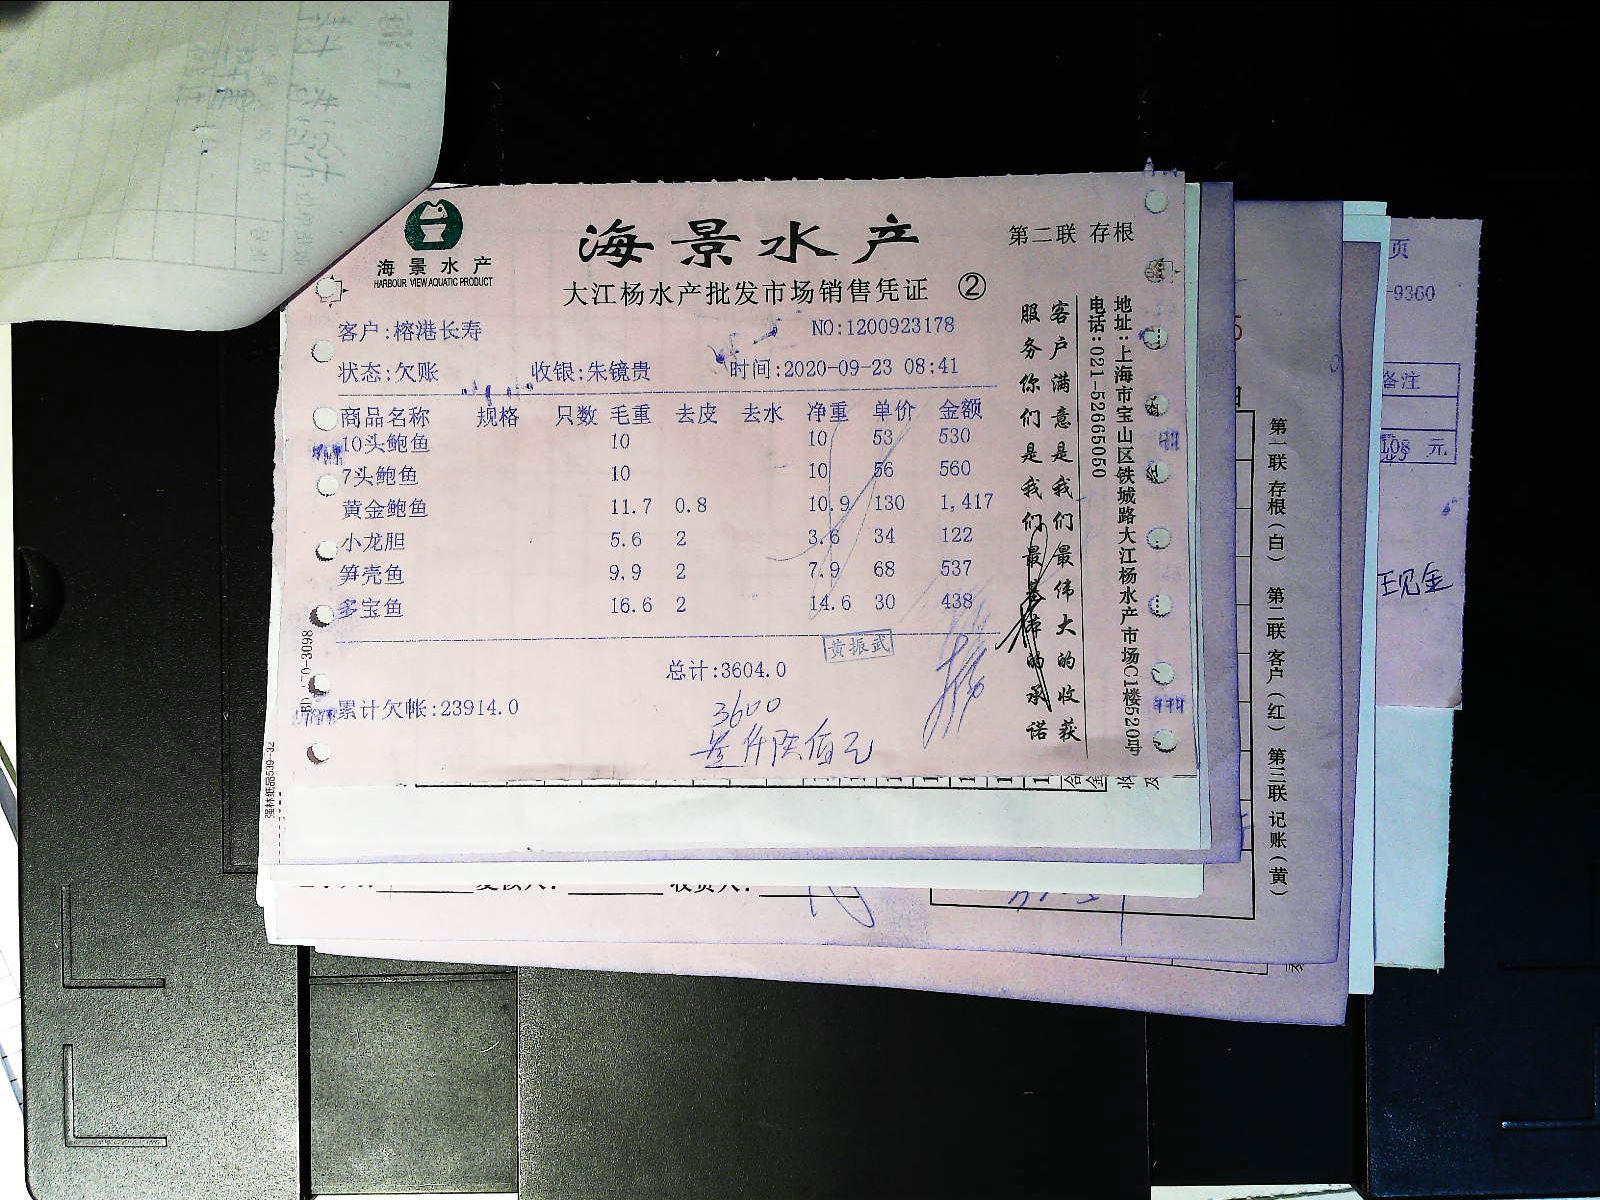 海景水产
HARBOUR VIEW AQUATIC PRODUCT
海景水产
第二联 存根
大江杨水产批发市场销售凭证 ②
客户:榕港长寿
NO:1200923178
状态:欠账 收银:朱镜贵 时间:2020-09-23 08:41
商品名称 规格 只数 毛重 去皮 去水 净重 单价 金额
10头鲍鱼 10 10 53 530
7头鲍鱼 10 10 56 560
黄金鲍鱼 11.7 0.8 10.9 130 1,417
小龙胆 5.6 2 3.6 34 122
笋壳鱼 9.9 2 7.9 68 537
多宝鱼 16.6 2 14.6 30 438
黄振武
总计:3604.0
累计欠帐:23914.0
3600
叁仟陆佰元
客户满意是我们最伟大的收获
服务你们是我们最基本的承诺
地址:上海市宝山区铁城路大江杨水产市场C1楼520号
电话:021-52665050
强林纸品539-32
第一联 存根(白) 第二联 客户(红) 第三联 记账(黄)
页
-9360
备注
元
现金